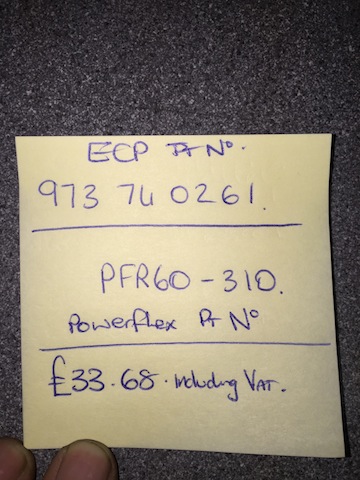 ECP Pt No.
973 74 0261.
PFR60-310.
Powerflex Pt No
£33.68. including VAT.